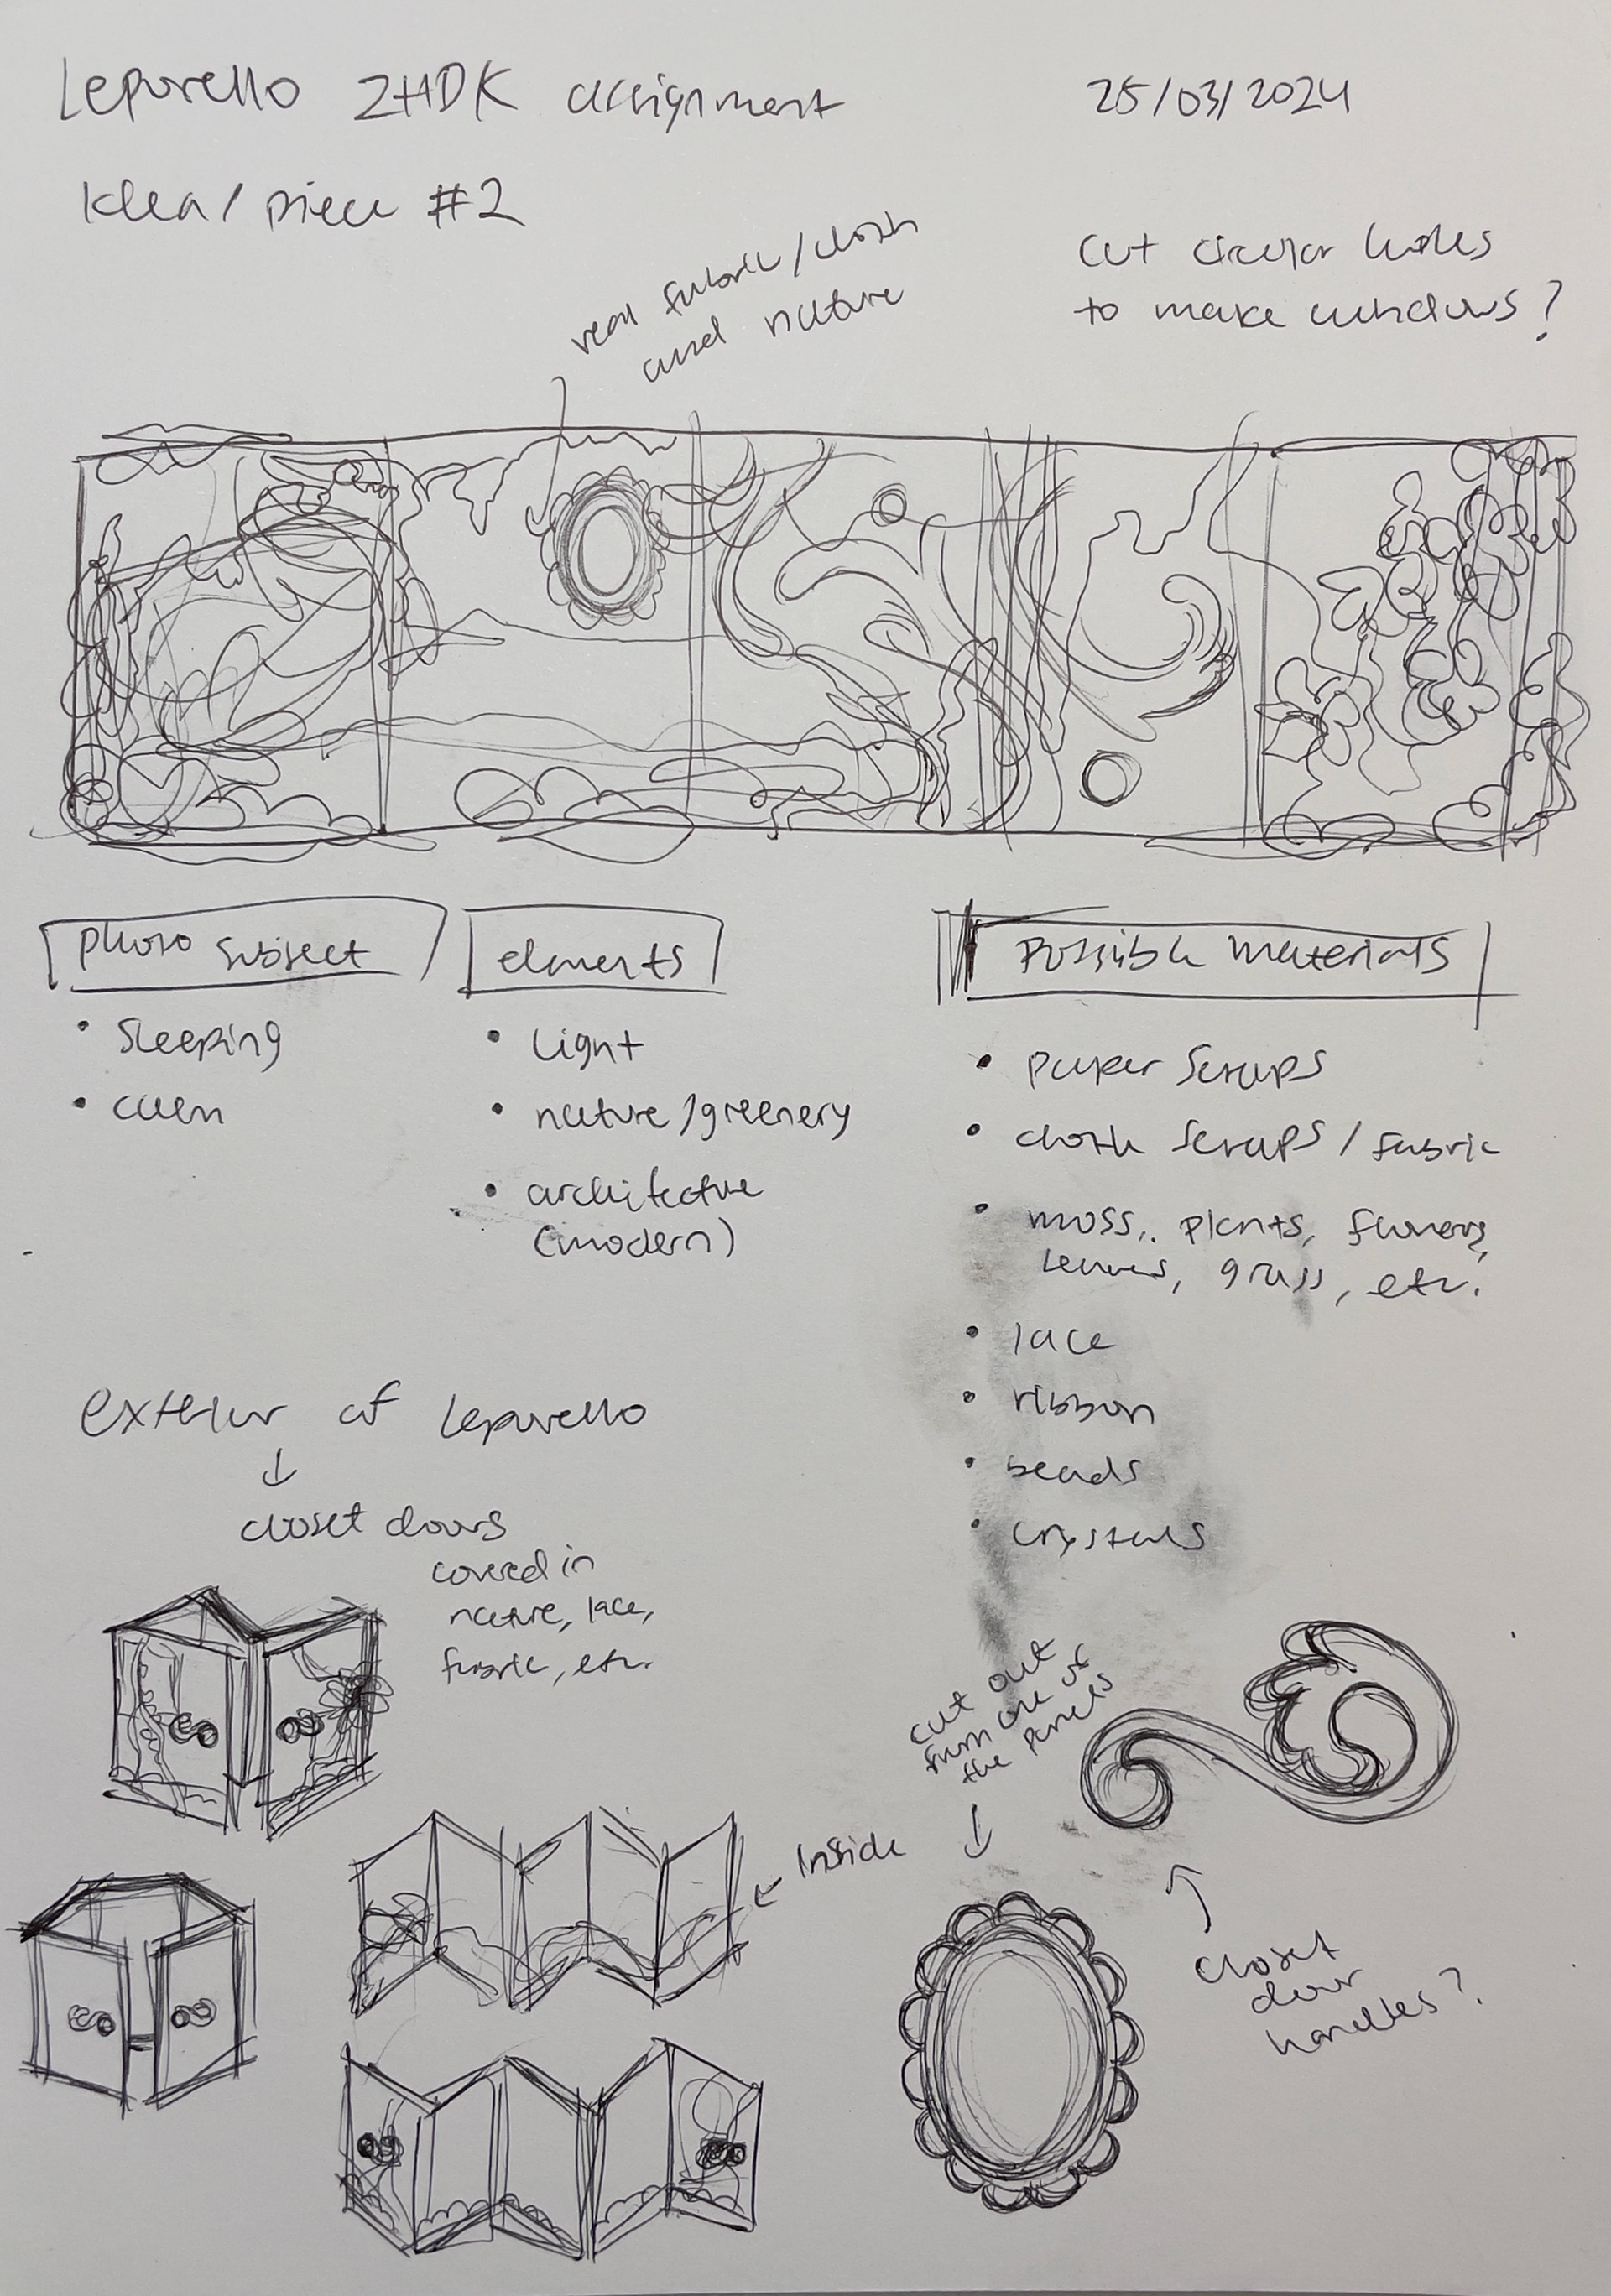 Leporello ZHDK assignment
25/03/2024
idea / piece #2
real fabric/cloth
and nature
cut circular holes
to make windows?
photo subject
• sleeping
• calm
elements
• light
• nature/greenery
• architecture
(modern)
possible materials
• paper scraps
• cloth scraps / fabric
• moss, plants, flowers,
leaves, grass, etc.
• lace
• ribbon
• beads
• crystals
exterior of leporello
↓
closet doors
covered in
nature, lace,
fabric, etc.
← inside
cut out
from one of
the panels
↓
↑
closet
door
handles?